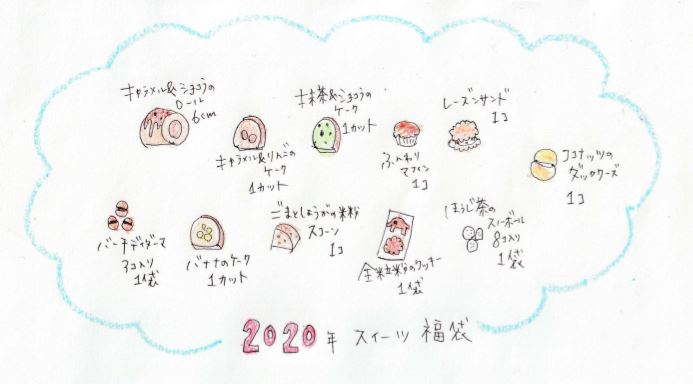 キャラメル&ショコラの
ロール
6cm
キャラメル&りんごの
ケーク
1カット
抹茶&ショコラの
ケーク
1カット
ふんわり
マフィン
1コ
レーズンサンド
1コ
ココナッツの
ダックワーズ
1コ
バーチディダーマ
3コ入り
1袋
バナナのケーク
1カット
ごまとしょうがの米粉
スコーン
1コ
全粒粉のクッキー
1袋
ほうじ茶の
スノーボール
8コ入り
1袋
2020年 スイーツ 福袋